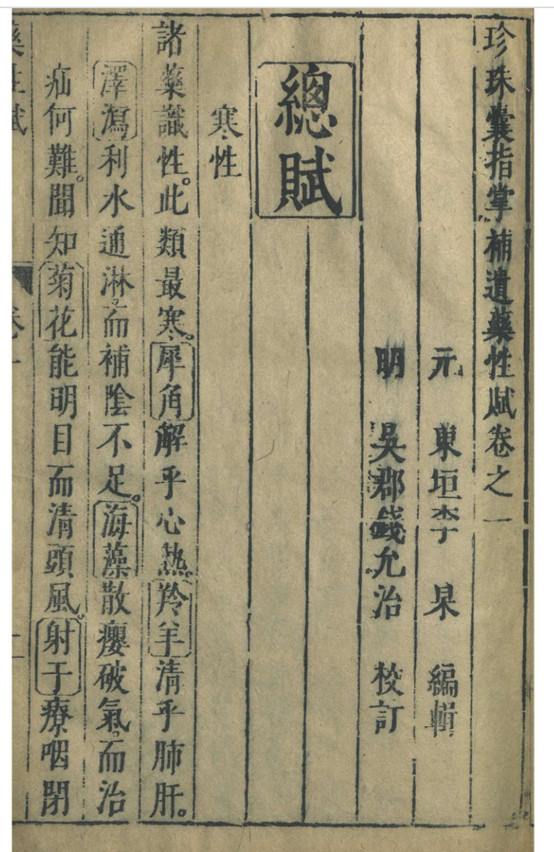 珍珠囊指掌補遺藥性賦卷之一
元 東垣李 杲 編輯
明 吳郡錢允治 校訂
總賦
寒性
諸藥識性。此類最寒。犀角解乎心熱。羚羊清乎肺肝。
澤瀉利水通淋。而補陰不足。海藻散癭破氣。而治
疝何難。聞知菊花能明目而清頭風。射干療咽閉
藥性賦
卷一
二